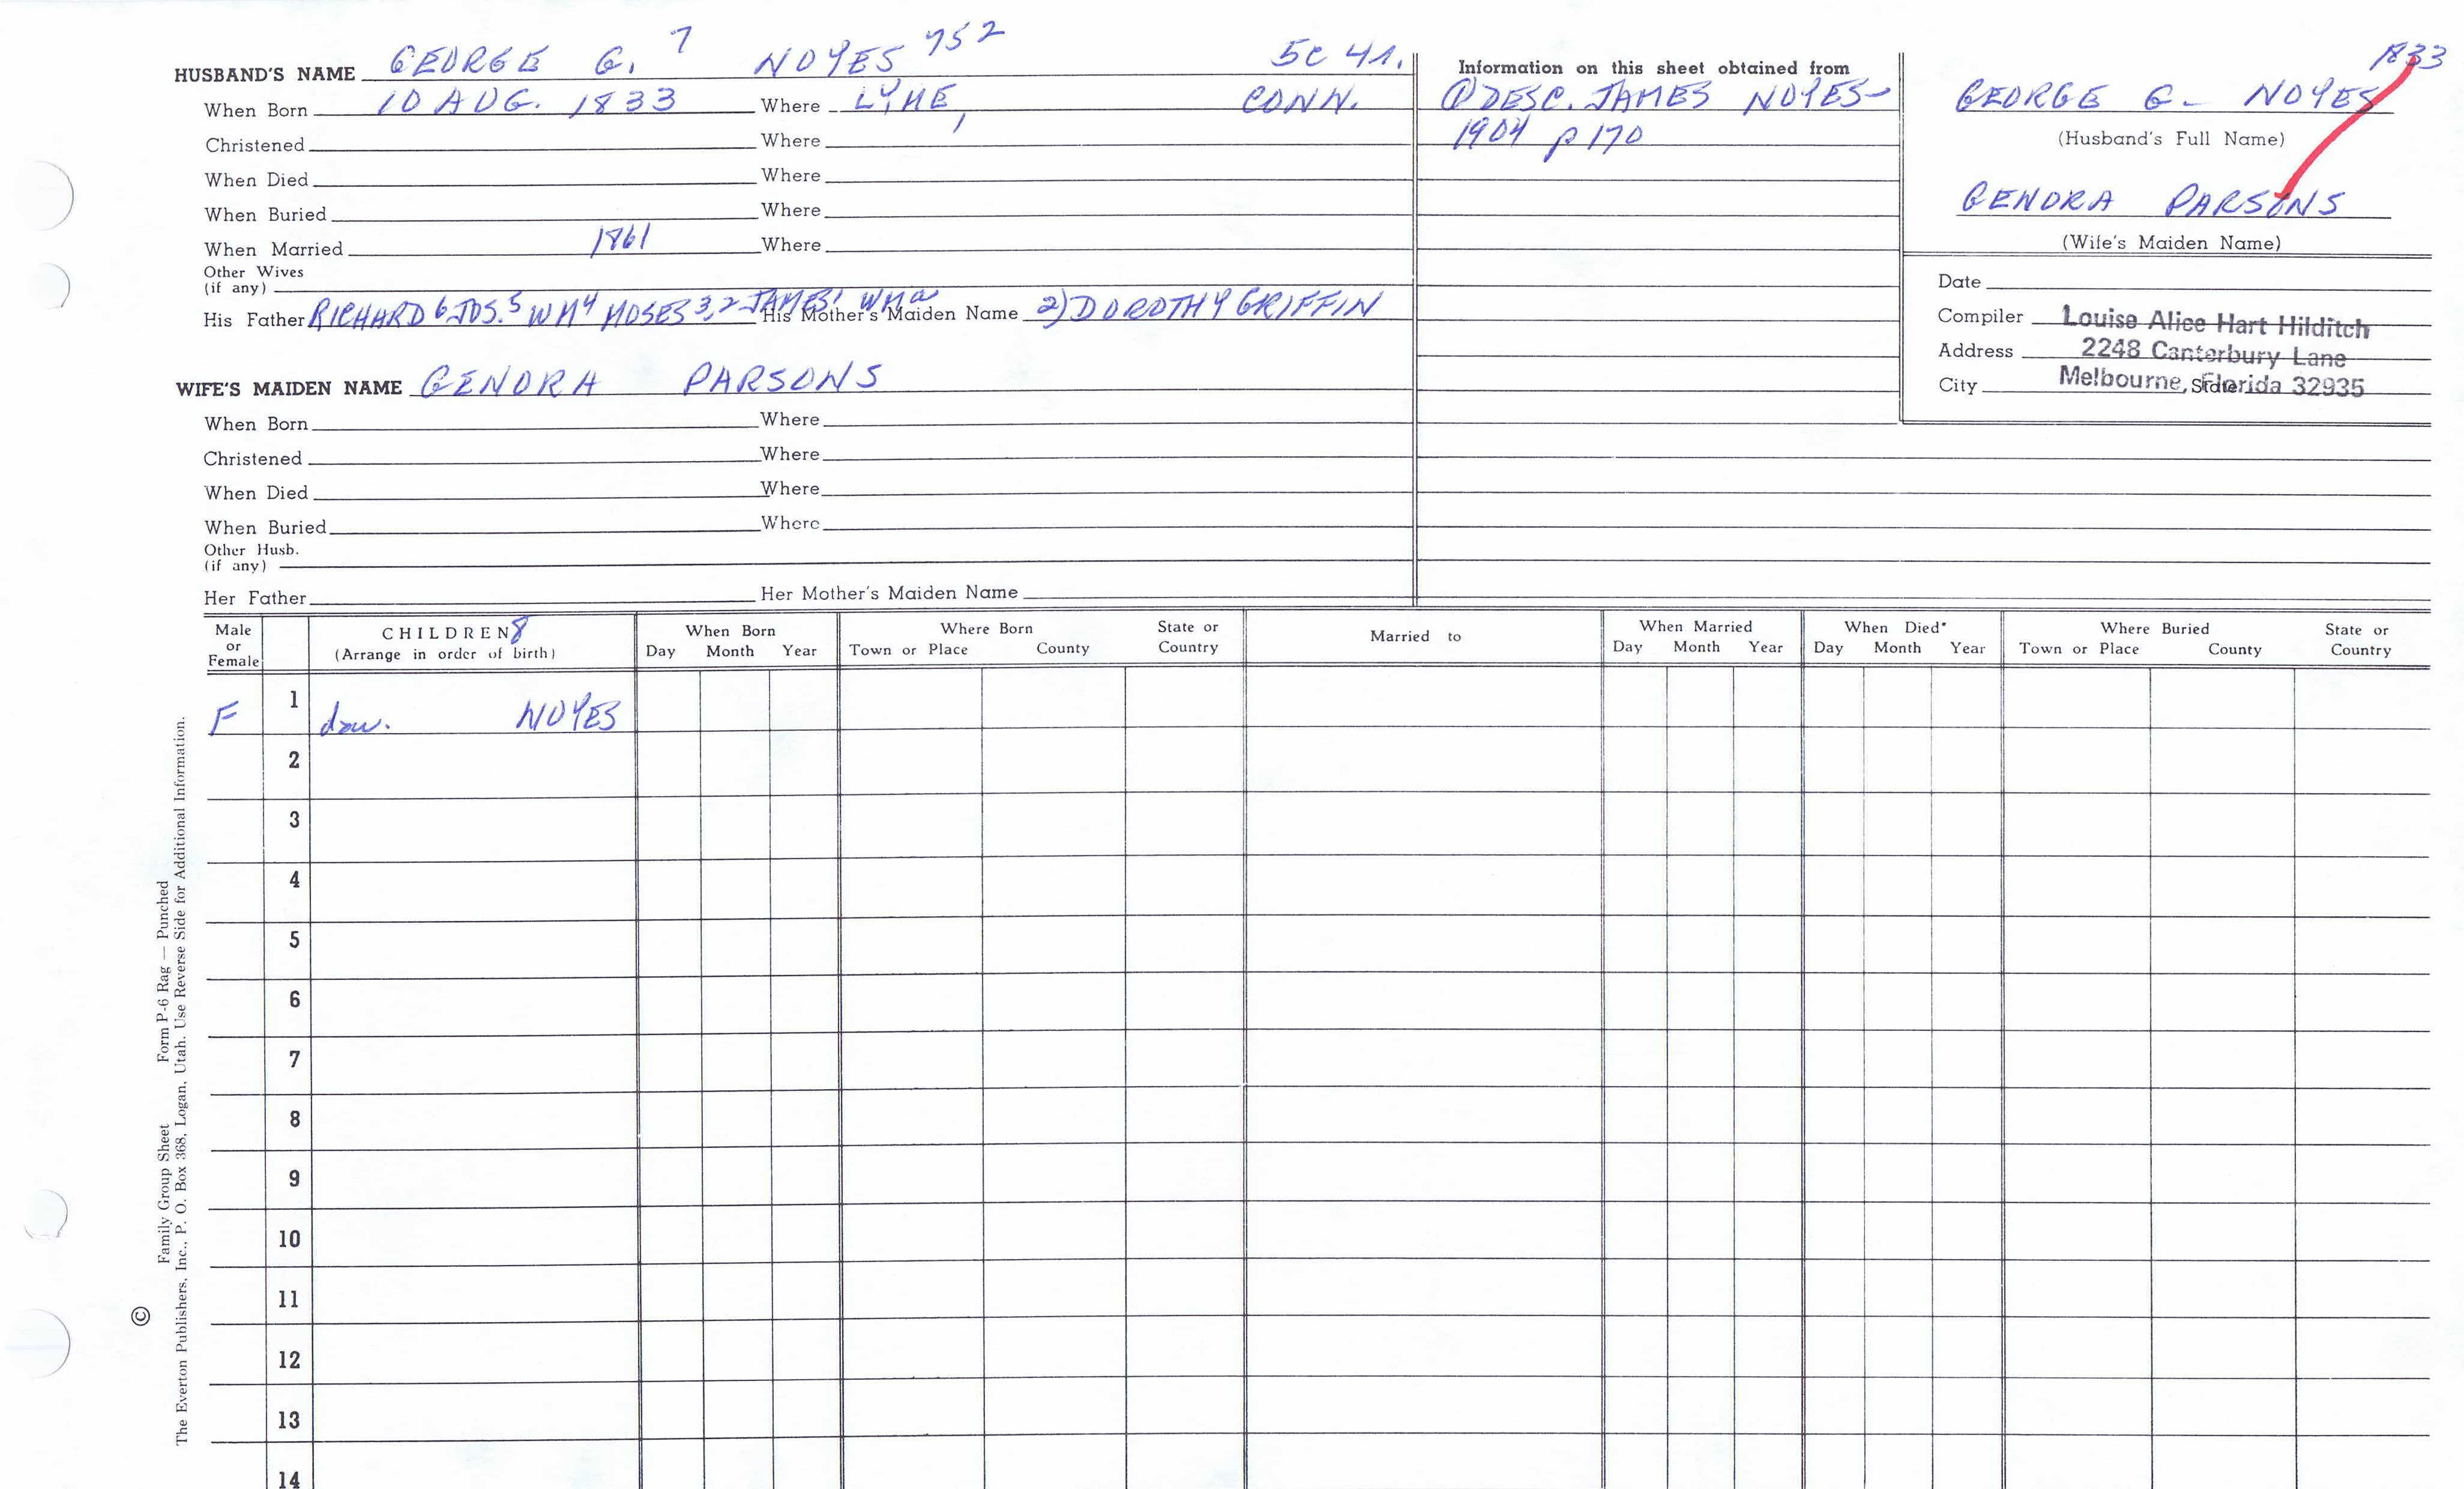 1833
HUSBAND'S NAME GEORGE G. 7 NOYES 752 5C 4r.
When Born 10 AUG. 1833 Where LYME, CONN.
Christened Where
When Died Where
When Buried Where
When Married 1861 Where
Other Wives
(if any)
His Father RICHARD 6 JOS. 5 WM 4 MOSES 3,2 JAMES 1 WM a His Mother's Maiden Name 2) DOROTHY GRIFFIN
WIFE'S MAIDEN NAME GENORA PARSONS
When Born Where
Christened Where
When Died Where
When Buried Where
Other Husb.
(if any)
Her Father Her Mother's Maiden Name
Information on this sheet obtained from
① DESC. JAMES NOYES-
1904 p 170
GEORGE G. NOYES
(Husband's Full Name)
GENORA PARSONS
(Wife's Maiden Name)
Date
Compiler Louise Alice Hart Hilditch
Address 2248 Canterbury Lane
City Melbourne, Florida 32935 State
Male or Female CHILDREN 8 (Arrange in order of birth) When Born Day Month Year Where Born Town or Place County State or Country Married to When Married Day Month Year When Died* Day Month Year Where Buried Town or Place County State or Country
F 1 dau. NOYES
2
3
4
5
6
7
8
9
10
11
12
13
14
Family Group Sheet Form P-6 Rag — Punched
© The Everton Publishers, Inc., P. O. Box 368, Logan, Utah. Use Reverse Side for Additional Information.